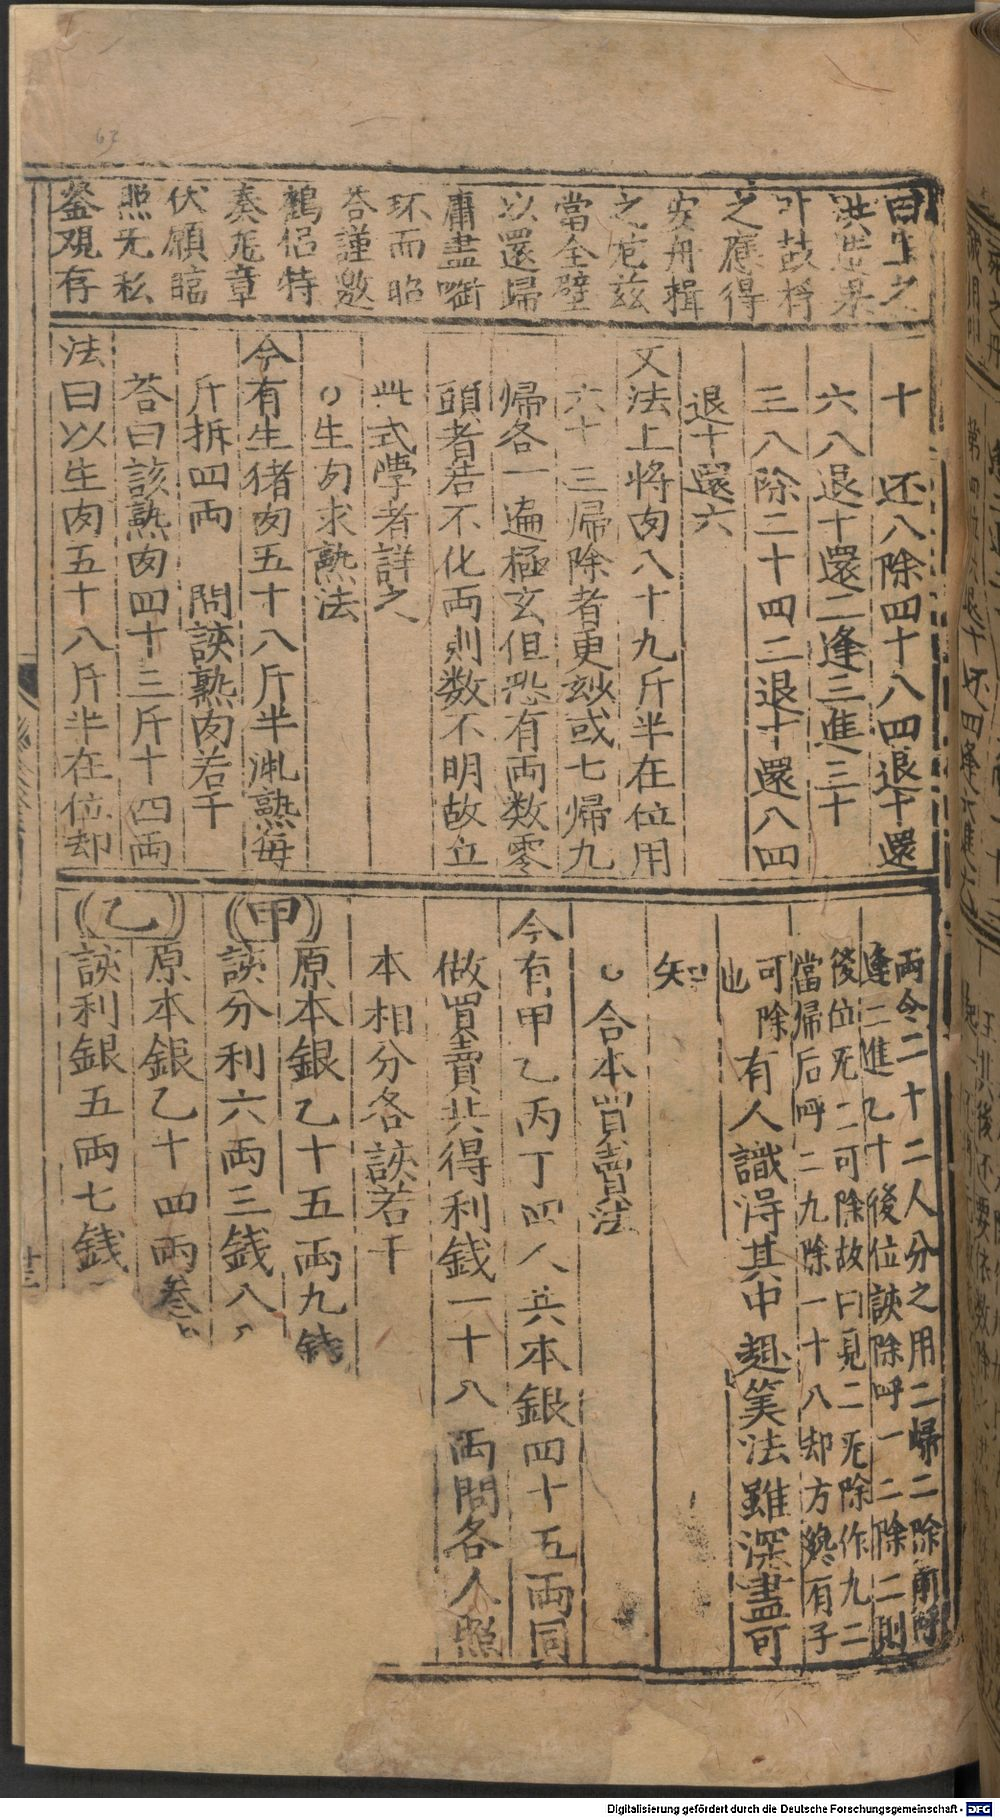 洪
叶鼓枻
之應得
安舟楫
之宛茲
當全璧
以還歸
庸盡啣
环而昭
荅謹邀
鶴侶特
奏尨章
伏願臨
照旡私
鉴观存
十　还八除四十八四退十還
六八退十還二逢三進三十
三八除二十四二退十還八四
退十還六
又法上將肉八十九斤半在位用
六十三帰除者更妙或七帰九
帰各一遍極玄但恐有両数零
頭者若不化両則数不明故立
此式學者詳之
生肉求熟法
今有生猪肉五十八斤半煑熟每
斤拆四両　問該熟肉若干
荅曰該熟肉四十三斤十四両
法曰以生肉五十八斤半在位却
両今二十二人分之用二帰二除前呼
逢二進乙十後位該除呼一二除二則
後位旡二可除故曰見二旡除作九二
當帰后呼二九除一十八却方終有子
可除
也
有人識淂其中趣筭法雖深盡可
知
合本買賣法
今有甲乙丙丁四人共本銀四十五両同
做買賣共得利錢一十八両問各人照
本相分各該若干
甲
原本銀乙十五両九錢
該分利六両三錢八
乙
原本銀乙十四両叁
該利銀五両七錢
廿三
63
Digitalisierung gefördert durch die Deutsche Forschungsgemeinschaft - DFG